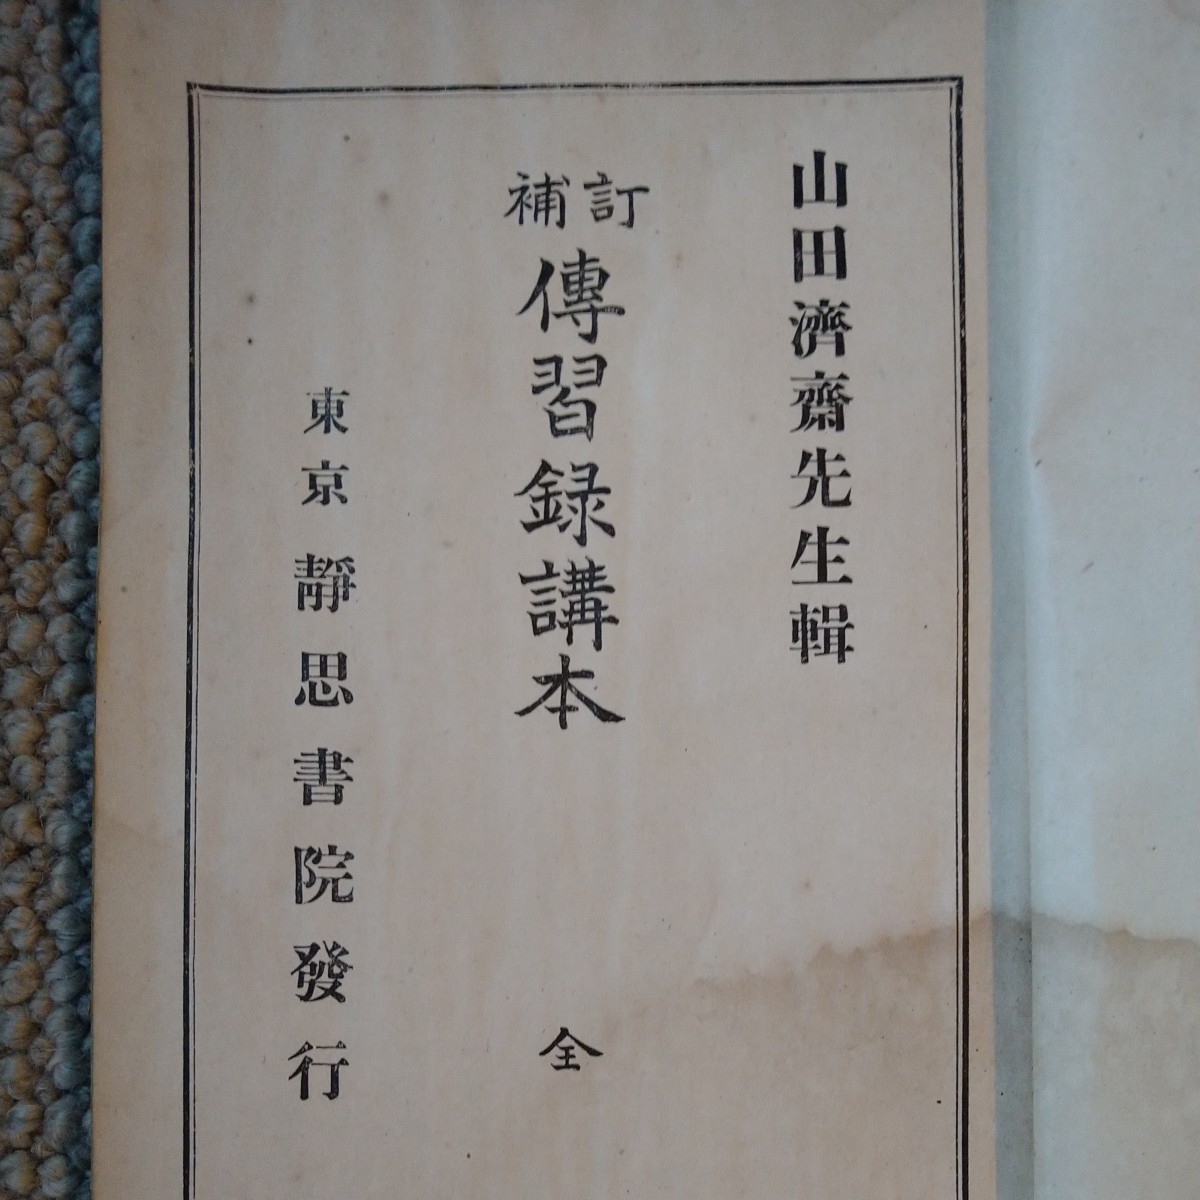 山田濟齋先生輯
訂補
傳習録講本 全
東京 靜思書院發行